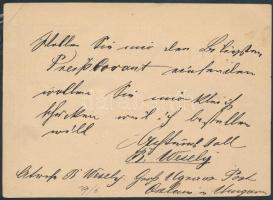 Wollen Sie mir den billigsten
Preiskorant einsenden
wollen Sie mir gleich
schicken weil ich bestellen
will
Achtungsvoll
B. Wesely
Adresse B. Wesely Gross Post
Ungarn